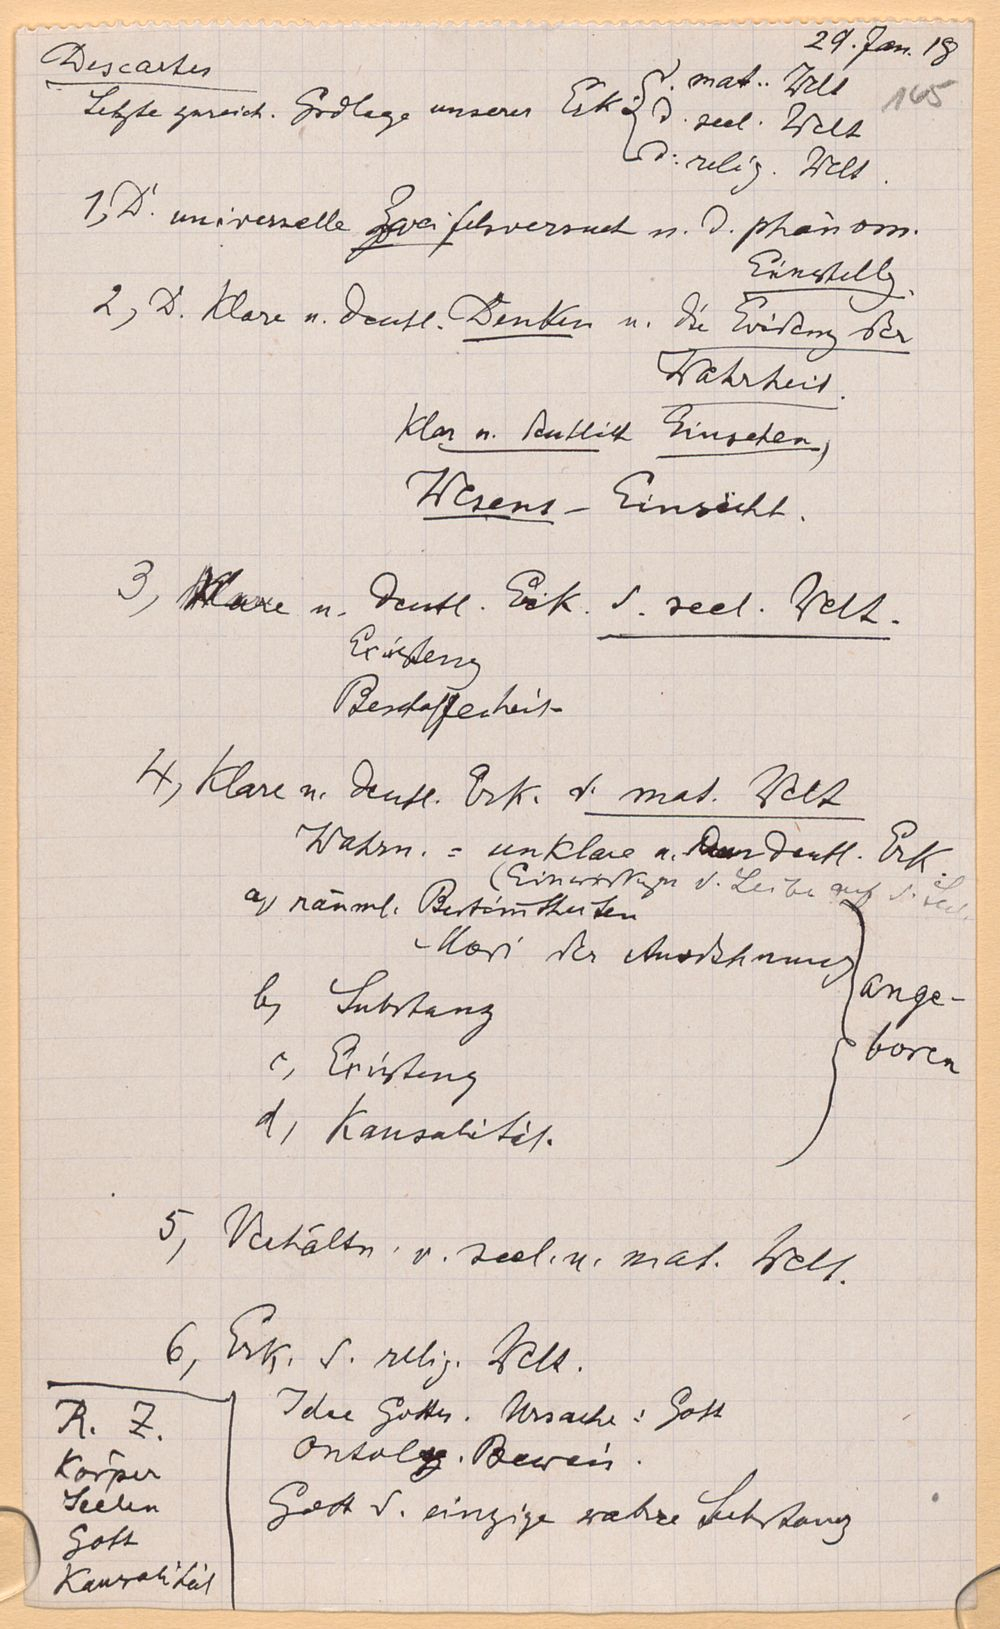 29. Jan. 18
Descartes
165
Letzte zureich. Grdlage unserer Erk: d. mat. Welt
d. seel. Welt
d. relig. Welt.
1, D. universelle Zweifelsversuch u. d. phänom.
Einstellg.
2, D. klare u. deutl. Denken u. die Evidenz der
Wahrheit.
Klar u. deutlich Einsehen,
Wesens - Einsicht.
3, Klare u. deutl. Erk. d. seel. Welt.
Existenz
Beschaffenheit
4, Klare u. deutl. Erk. d. mat. Welt
Wahrn. = unklare u. undeutl. Erk.
(Einwirkgn d. Leibes auf d. Seele
a, räuml. Bestimtheiten
Modi der Ausdehnung
b, Substanz
c, Existenz
d, Kausalität.
ange-
boren
5, Verhältn. v. seel. u. mat. Welt.
6, Erk. d. relig. Welt.
Idee Gottes. Ursache: Gott
Ontolog. Beweis.
Gott d. einzige wahre Substanz
R. Z.
Körper
Seelen
Gott
Kausalität